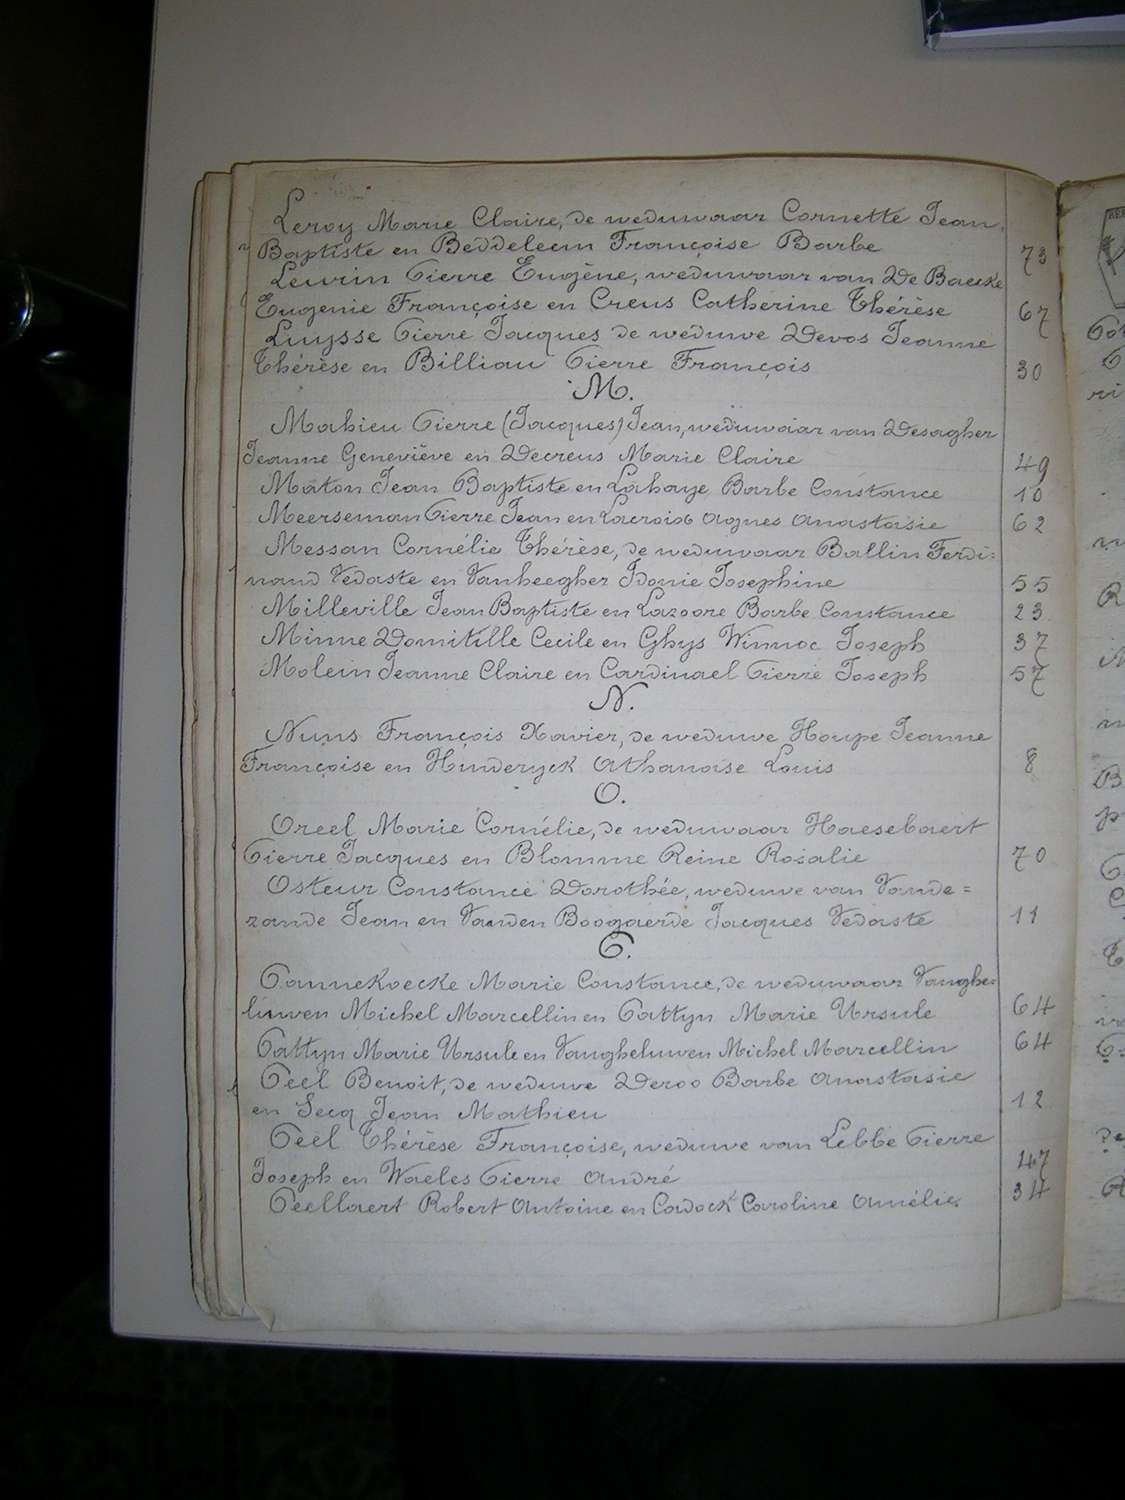 Leroy Marie Claire, de weduwaar Cornette Jean
Baptiste en Beddeleem Françoise Barbe 73
Leurin Pierre Eugène, weduwaar van De Baecke
Eugenie Françoise en Creus Catherine Thérèse 67
Luysse Pierre Jacques de weduwe Devos Jeanne
Thérèse en Billiau Pierre François 30
M.
Mahieu Pierre (Jacques) Jean, weduwaar van Desagher
Jeanne Geneviève en Decreus Marie Claire 49
Maton Jean Baptiste en Lahaye Barbe Constance 10
Meerseman Pierre Jean en Lacroix Agnes Anastasie 62
Messan Cornélie Thérèse, de weduwaar Ballin Ferdi=
nand Vedaste en Vanheegher Idonie Josephine 55
Milleville Jean Baptiste en Lazoore Barbe Constance 23
Minne Domitille Cecile en Ghys Winnoc Joseph 37
Molein Jeanne Claire en Cardinael Pierre Joseph 57
N.
Nuns François Xavier, de weduwe Houpe Jeanne
Françoise en Hinderyck Athanaise Louis 8
O.
Oreel Marie Cornélie, de weduwaar Haesebaert
Pierre Jacques en Blomme Reine Rosalie 70
Osteur Constance Dorothée, weduwe van Vande=
zande Jean en Vanden Boogaerde Jacques Vedaste 11
P.
Pannekoecke Marie Constance, de weduwaar Vanghe=
luwen Michel Marcellin en Pattyn Marie Ursule 64
Pattyn Marie Ursule en Vangheluwen Michel Marcellin 64
Peel Benoit, de weduwe Deroo Barbe Anastasie
en Secq Jean Mathieu 12
Peel Thérèse Françoise, weduwe van Lebbe Pierre
Joseph en Waeles Pierre André 47
Peellaert Robert Antoine en Cadock Caroline Amélie 34